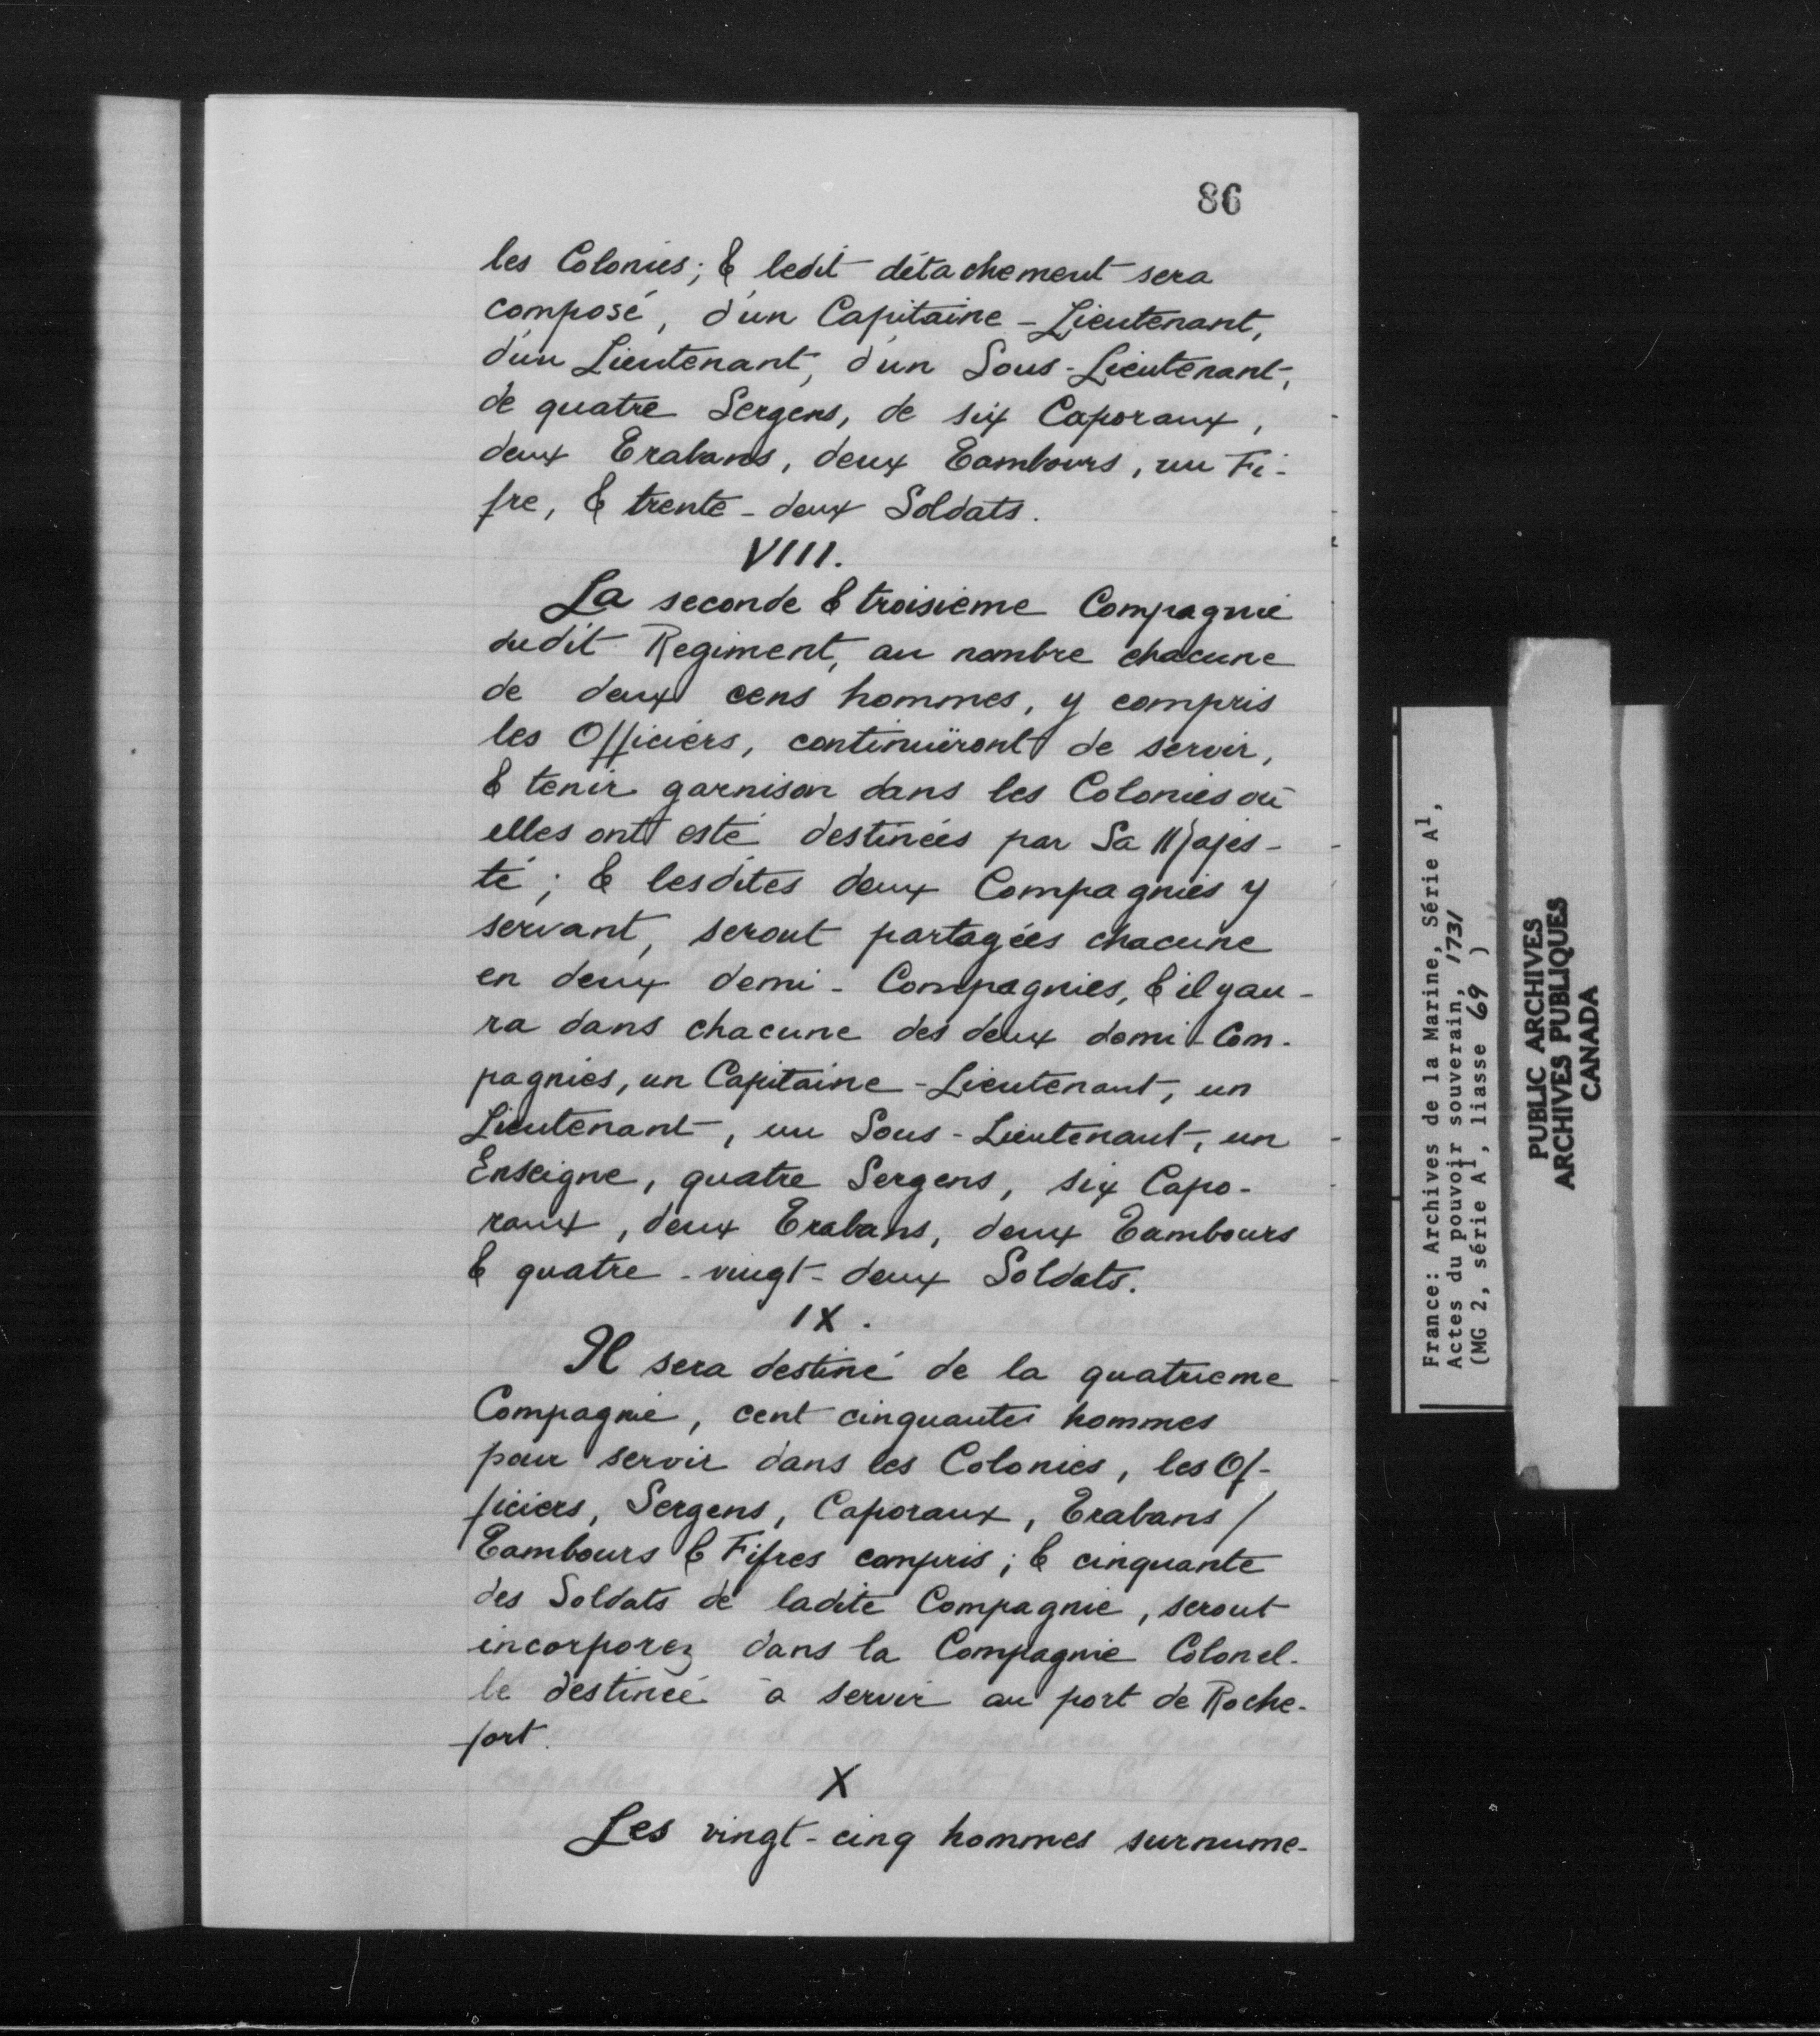 86
les Colonies; & ledit détachement sera
composé, d'un Capitaine-Lieutenant,
d'un Lieutenant, d'un Sous-Lieutenant,
de quatre Sergens, de six Caporaux,
deux Trabans, deux Tambours, un Fi-
fre, & trente-deux Soldats.
VIII.
La seconde & troisieme Compagnie
dudit Regiment, au nombre chacune
de deux cens hommes, y compris
les Officiers, continuëront de servir,
& tenir garnison dans les Colonies où
elles ont esté destinées par Sa Majes-
té; & lesdites deux Compagnies y
servant, seront partagées chacune
en deux demi-Compagnies, & il y au-
ra dans chacune des deux demi-Com-
pagnies, un Capitaine-Lieutenant, un
Lieutenant, un Sous-Lieutenant, un
Enseigne, quatre Sergens, six Capo-
raux, deux Trabans, deux Tambours
& quatre-vingt-deux Soldats.
IX.
Il sera destiné de la quatrieme
Compagnie, cent cinquante hommes
pour servir dans les Colonies, les Of-
ficiers, Sergens, Caporaux, Trabans/
Tambours & Fifres compris; & cinquante
des Soldats de ladite Compagnie, seront
incorporez dans la Compagnie Colonel-
le destinée à servir au port de Roche-
fort.
X
Les vingt-cinq hommes surnume-
France: Archives de la Marine, Série A1,
Actes du pouvoir souverain, 1731
(MG 2, série A1, liasse 69 )
PUBLIC ARCHIVES
ARCHIVES PUBLIQUES
CANADA